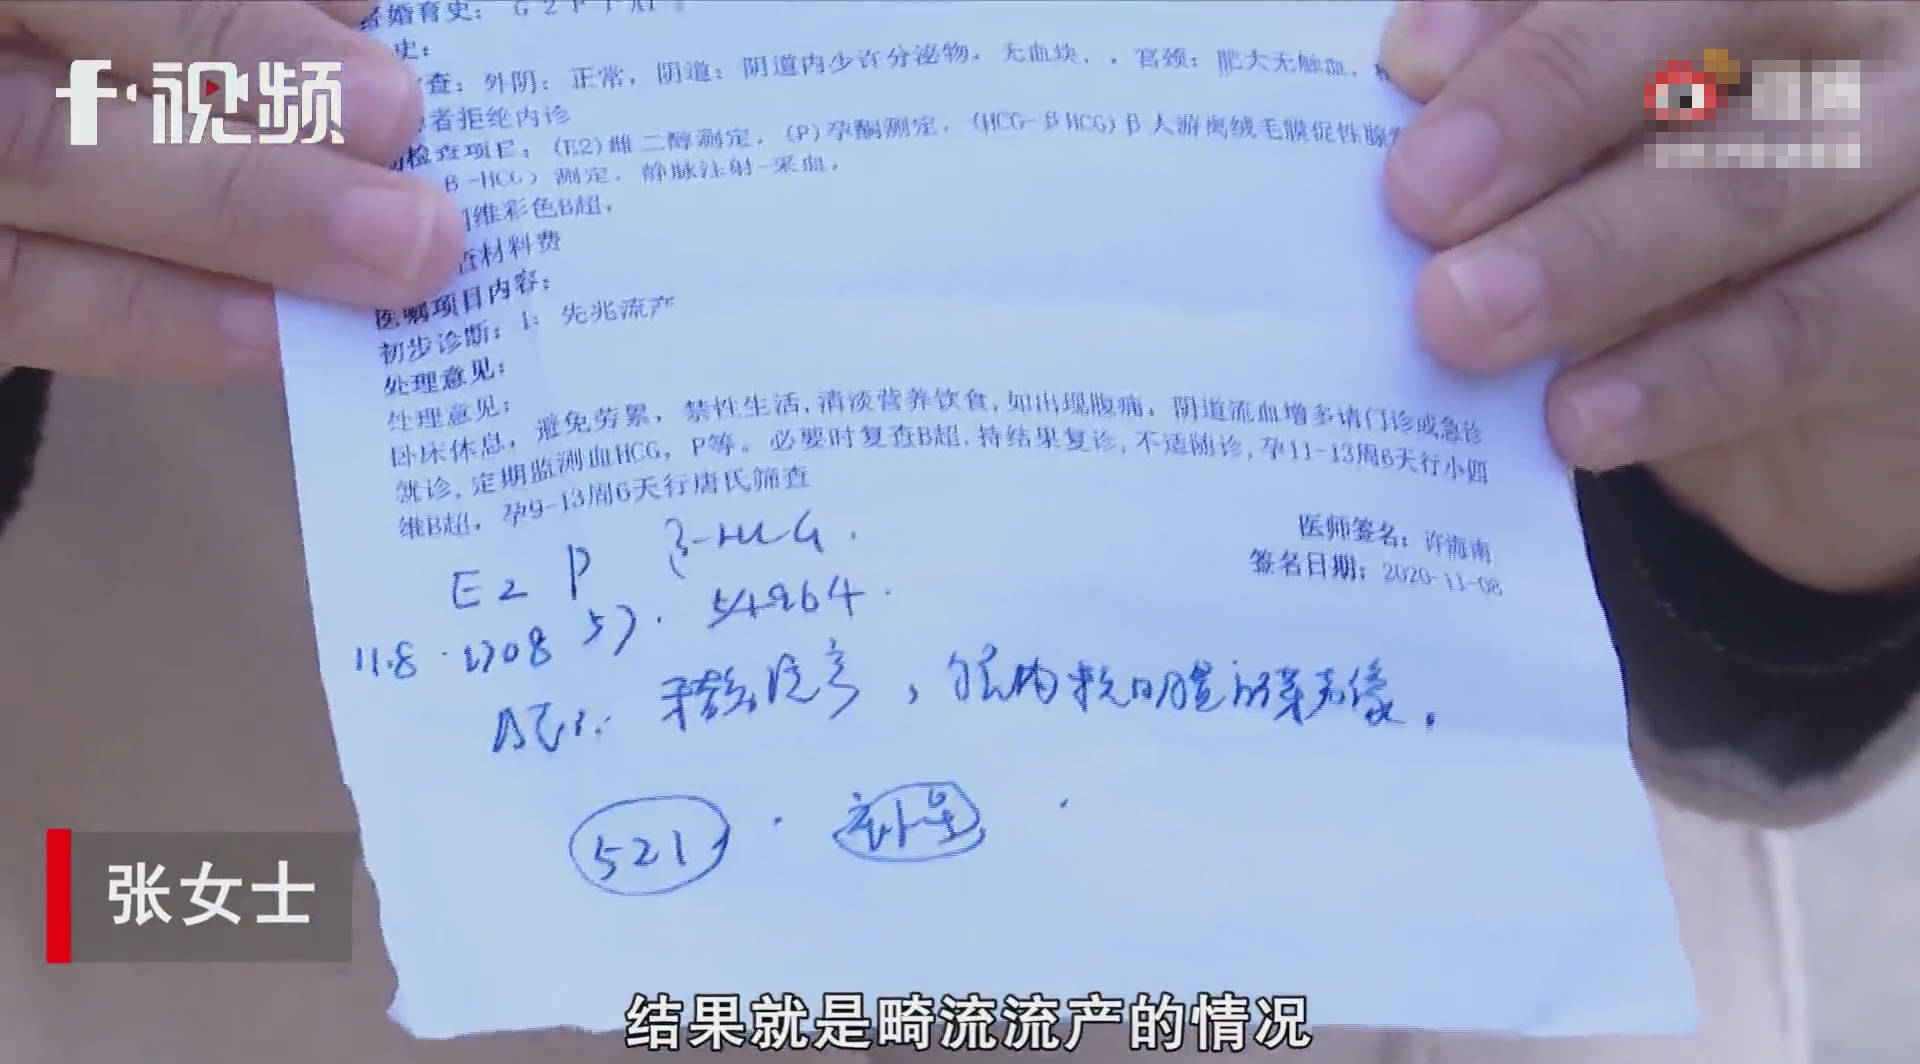 经婚育史: G2P1A1
史:
查: 外阴: 正常, 阴道: 阴道内少许分泌物, 无血块, , 宫颈: 肥大无触血,
者拒绝内诊
检查项目: (E2)雌二醇测定, (P)孕酮测定, (HCG-BHCG)B人游离绒毛膜促性腺
B-HCG) 测定, 静脉注射-采血,
维彩色B超,
查材料费
医嘱项目内容:
初步诊断: 1: 先兆流产
处理意见:
处理意见:
卧床休息, 避免劳累, 禁性生活, 清淡营养饮食, 如出现腹痛, 阴道流血增多请门诊或急诊
就诊, 定期监测血HCG, P等。必要时复查B超, 持结果复诊, 不适随诊, 孕11-13周6天行小四
维B超, 孕9-13周6天行唐氏筛查
医师签名: 许海南
签名日期: 2020-11-08
E2 P β-HCG.
11.8 57. 54264.
521
f·视频
张女士
结果就是畸流流产的情况